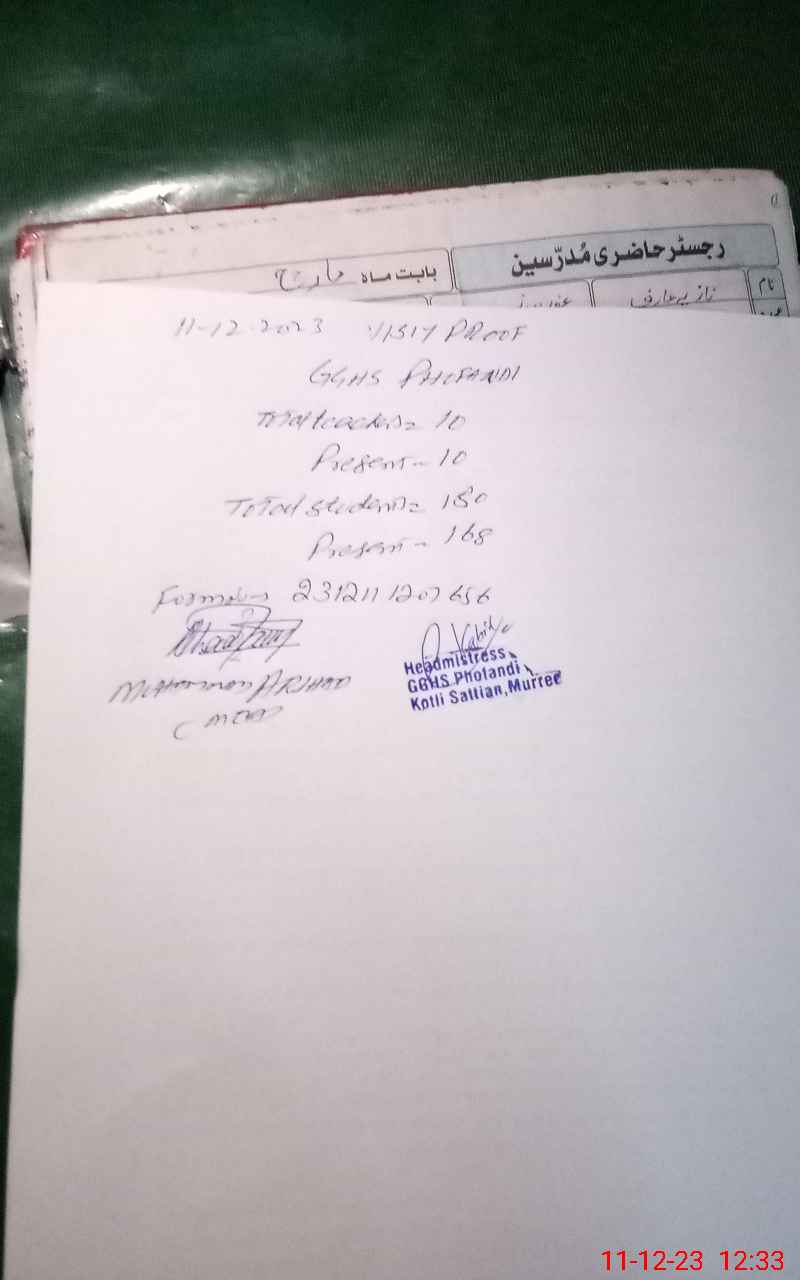 رجسٹر حاضری مُدرّسین
بابت ماہ مارچ
نام
نازیہ عارف
11-12-2023 VISIT PROOF
GGHS PHOFANDI
Total teachers= 10
Present- 10
Total students= 180
Present- 168
231211120
Muhammad ARSHAD
Headmistress
GGHS Phofandi
Kotli Sattian, Murree
11-12-23 12:33